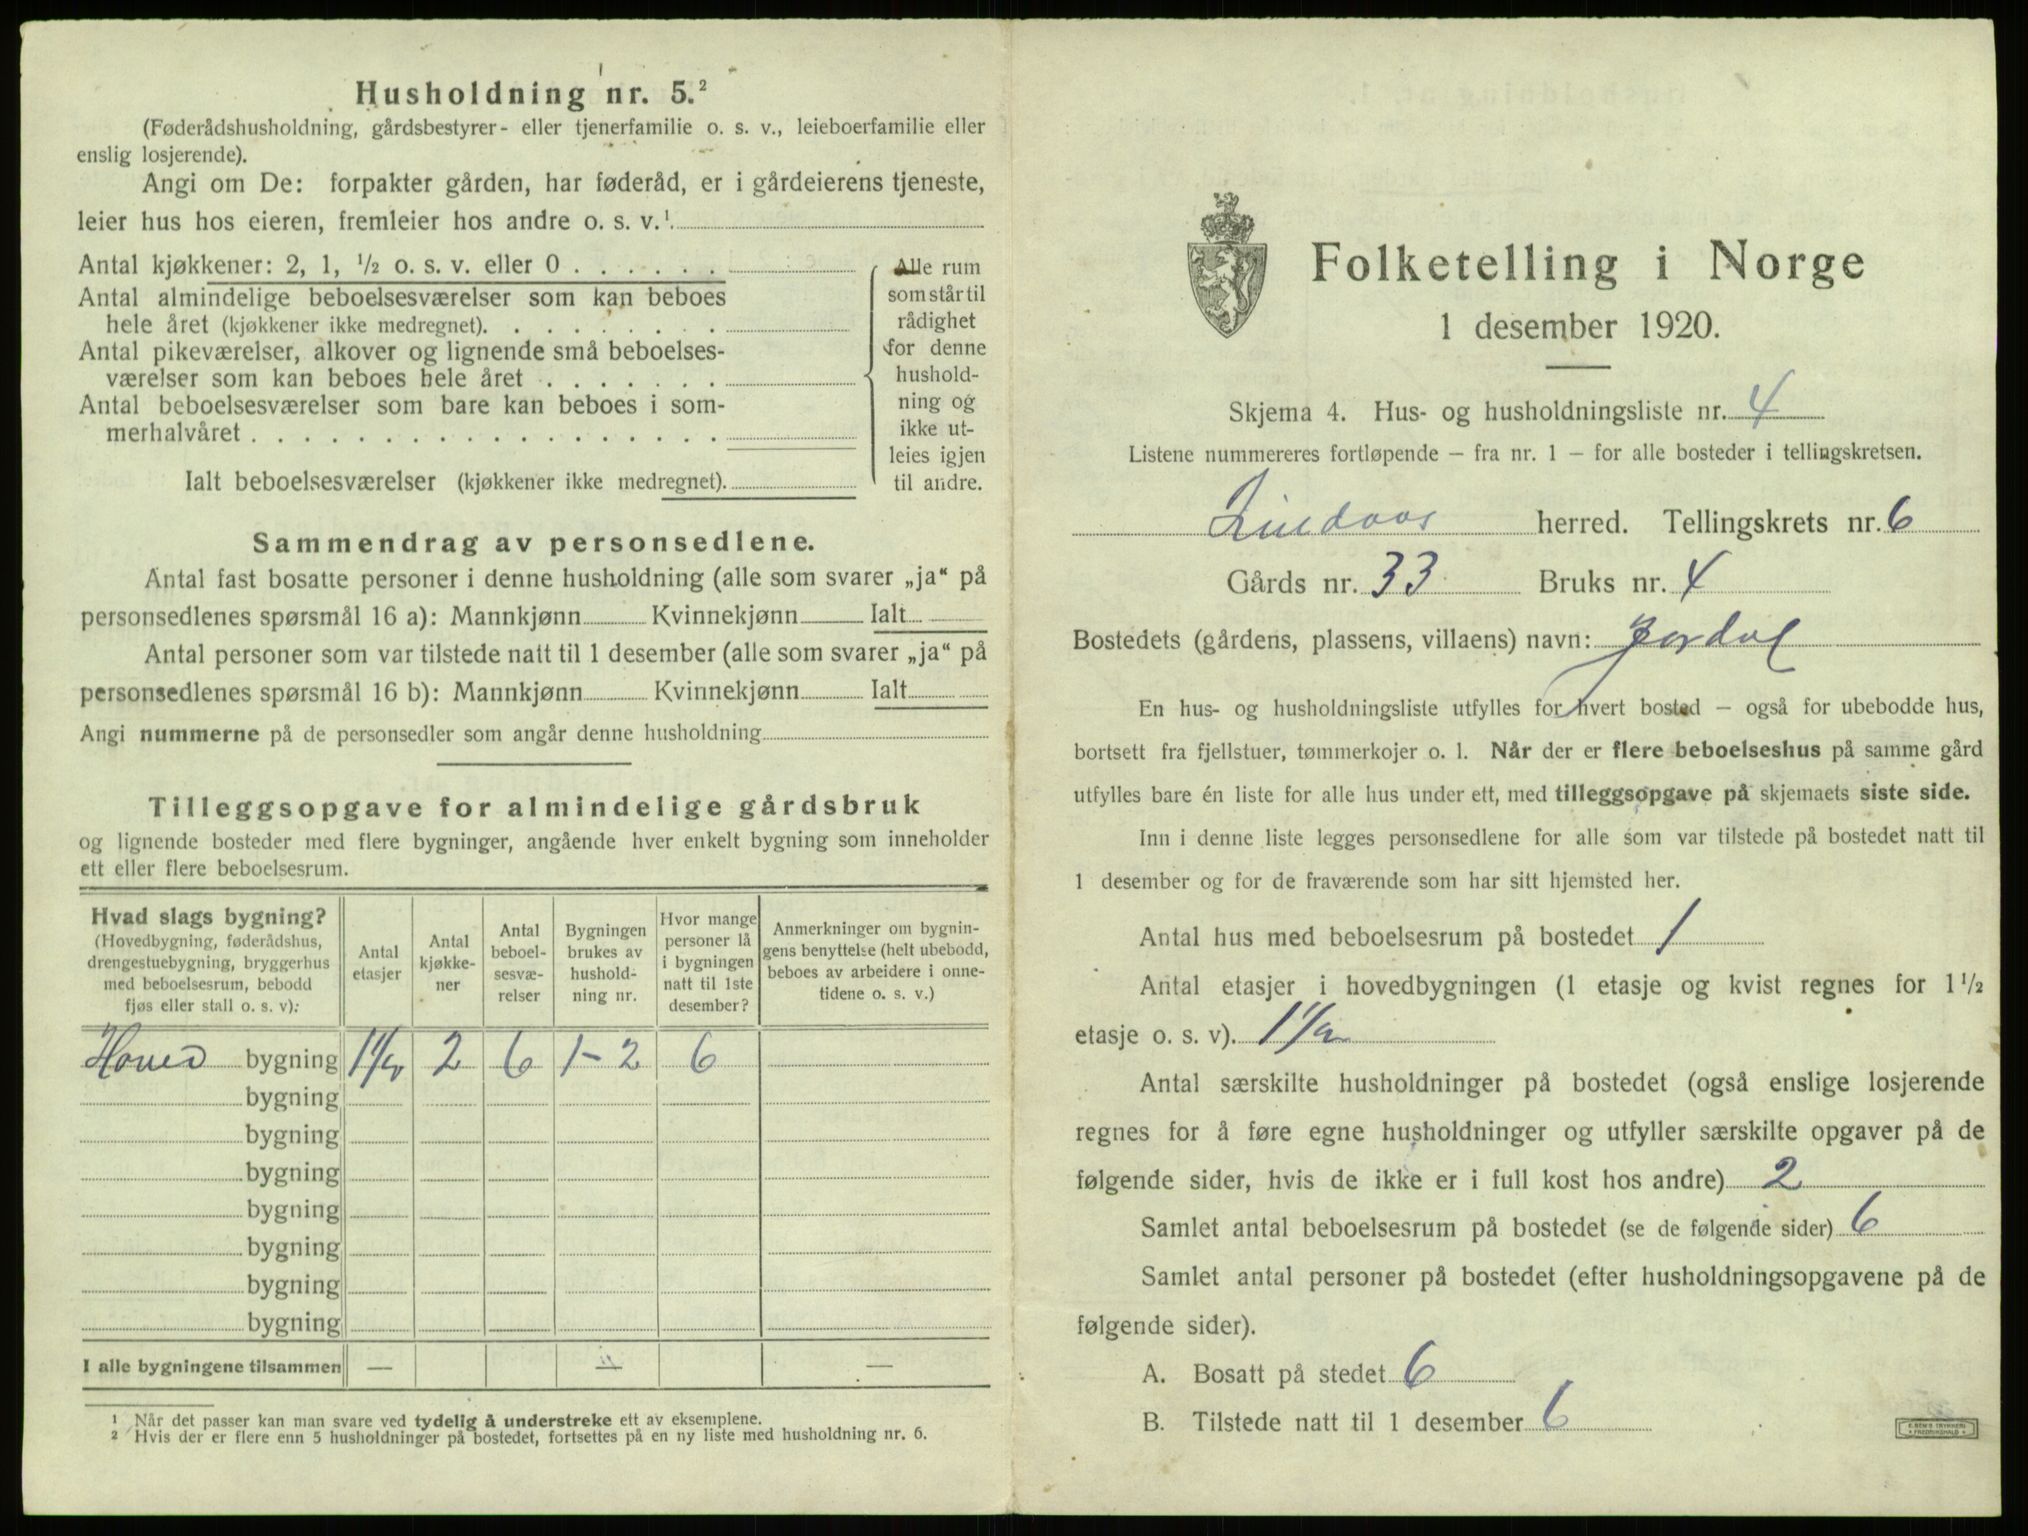 Husholdning nr. 5.²
(Føderådshusholdning, gårdsbestyrer- eller tjenerfamilie o. s. v., leieboerfamilie eller
enslig losjerende).
Angi om De: forpakter gården, har føderåd, er i gårdeierens tjeneste,
leier hus hos eieren, fremleier hos andre o. s. v.¹
Antal kjøkkener: 2, 1, ½ o. s. v. eller 0
Antal almindelige beboelsesværelser som kan beboes
hele året (kjøkkener ikke medregnet).
Antal pikeværelser, alkover og lignende små beboelses-
værelser som kan beboes hele året
Antal beboelsesværelser som bare kan beboes i som-
merhalvåret
Ialt beboelsesværelser (kjøkkener ikke medregnet).
Alle rum
som står til
rådighet
for denne
hushold-
ning og
ikke ut-
leies igjen
til andre.
Sammendrag av personsedlene.
Antal fast bosatte personer i denne husholdning (alle som svarer „ja“ på
personsedlenes spørsmål 16 a): Mannkjønn Kvinnekjønn Ialt
Antal personer som var tilstede natt til 1 desember (alle som svarer „ja“ på
personsedlenes spørsmål 16 b): Mannkjønn Kvinnekjønn Ialt
Angi nummerne på de personsedler som angår denne husholdning
Tilleggsopgave for almindelige gårdsbruk
og lignende bosteder med flere bygninger, angående hver enkelt bygning som inneholder
ett eller flere beboelsesrum.
Hvad slags bygning?
(Hovedbygning, føderådshus,
drengestuebygning, bryggerhus
med beboelsesrum, bebodd
fjøs eller stall o. s. v):
Antal
etasjer
Antal
kjøkke-
ner
Antal
beboel-
sesvæ-
relser
Bygningen
brukes av
hushold-
ning nr.
Hvor mange
personer lå
i bygningen
natt til 1ste
desember?
Anmerkninger om bygnin-
gens benyttelse (helt ubebodd,
beboes av arbeidere i onne-
tidene o. s. v.)
Hoved bygning 1½ 2 6 1-2 6
bygning
bygning
bygning
bygning
bygning
bygning
bygning
I alle bygningene tilsammen — — —
¹ Når det passer kan man svare ved tydelig å understreke ett av eksemplene.
² Hvis der er flere enn 5 husholdninger på bostedet, fortsettes på en ny liste med husholdning nr. 6.
Folketelling i Norge
1 desember 1920.
Skjema 4. Hus- og husholdningsliste nr. 4
Listene nummereres fortløpende — fra nr. 1 — for alle bosteder i tellingskretsen.
Lindaas herred. Tellingskrets nr. 6
Gårds nr. 33 Bruks nr. 4
Bostedets (gårdens, plassens, villaens) navn: Jordal
En hus- og husholdningsliste utfylles for hvert bosted — også for ubebodde hus,
bortsett fra fjellstuer, tømmerkojer o. l. Når der er flere beboelseshus på samme gård
utfylles bare én liste for alle hus under ett, med tilleggsopgave på skjemaets siste side.
Inn i denne liste legges personsedlene for alle som var tilstede på bostedet natt til
1 desember og for de fraværende som har sitt hjemsted her.
Antal hus med beboelsesrum på bostedet 1
Antal etasjer i hovedbygningen (1 etasje og kvist regnes for 1½
etasje o. s. v). 1½
Antal særskilte husholdninger på bostedet (også enslige losjerende
regnes for å føre egne husholdninger og utfyller særskilte opgaver på de
følgende sider, hvis de ikke er i full kost hos andre) 2
Samlet antal beboelsesrum på bostedet (se de følgende sider) 6
Samlet antal personer på bostedet (efter husholdningsopgavene på de
følgende sider).
A. Bosatt på stedet 6
B. Tilstede natt til 1 desember 6